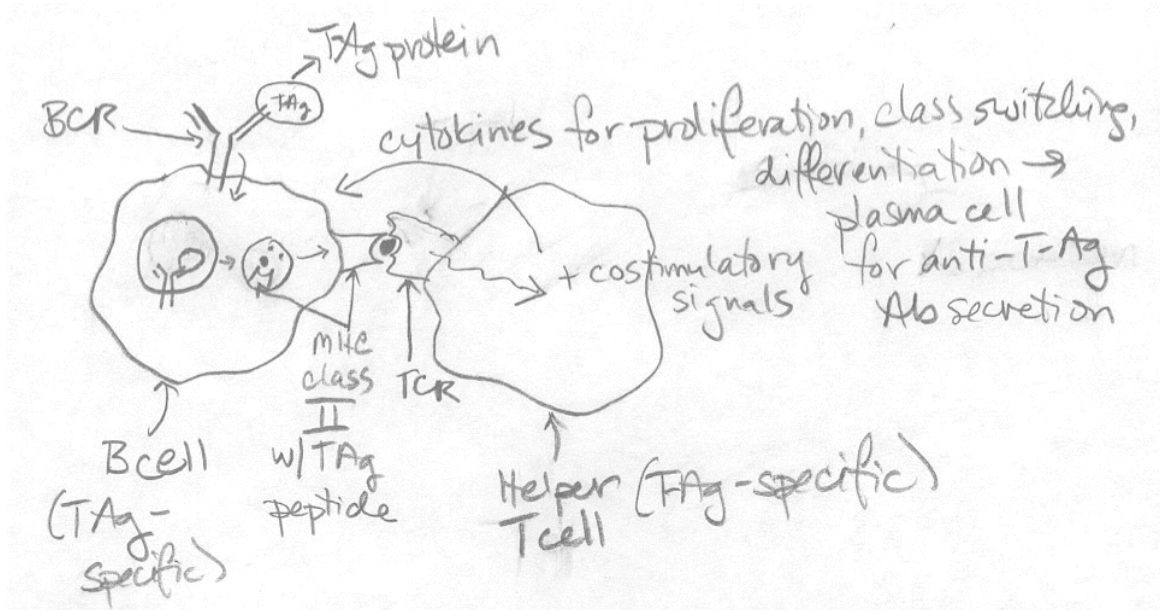 T-Ag protein
TAg
BCR
cytokines for proliferation, class switching,
differentiation →
plasma cell
for anti-T-Ag
Ab secretion
+ costimulatory
signals
MHC
class
II
w/TAg
peptide
TCR
B cell
(TAg-
specific)
Helper (TAg-specific)
T cell